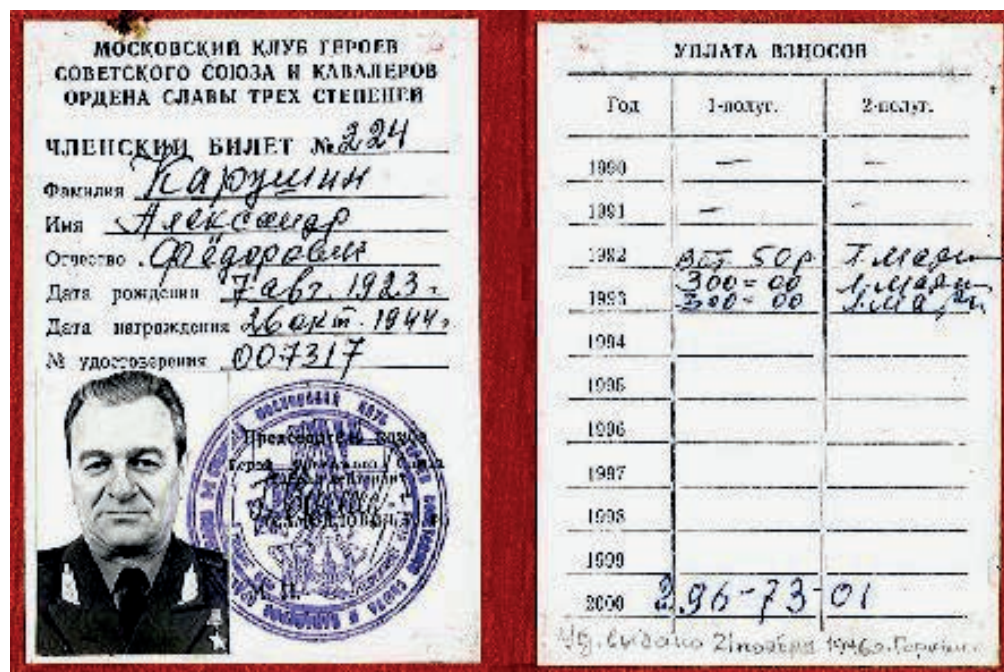 МОСКОВСКИЙ КЛУБ ГЕРОЕВ
СОВЕТСКОГО СОЮЗА И КАВАЛЕРОВ
ОРДЕНА СЛАВЫ ТРЕХ СТЕПЕНЕЙ
ЧЛЕНСКИЙ БИЛЕТ № 224
Фамилия Карушин
Имя Александр
Отчество Фёдорович
Дата рождения 7 авг. 1923 г
Дата награждения 26 окт. 1944 г
№ удостоверения 007317
УПЛАТА ВЗНОСОВ
Год 1-полуг. 2-полуг.
1990 — —
1991 — —
1992 50р
300=00
1993 300=00
1994
1995
1996
1997
1998
1999
2000 296-73-01
Уд. выдано 21 ноября 1946г.